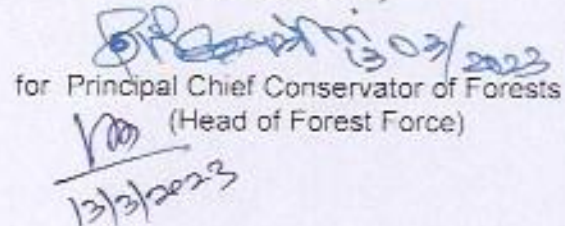 13/03/2023
for Principal Chief Conservator of Forests
(Head of Forest Force)
13/3/2023